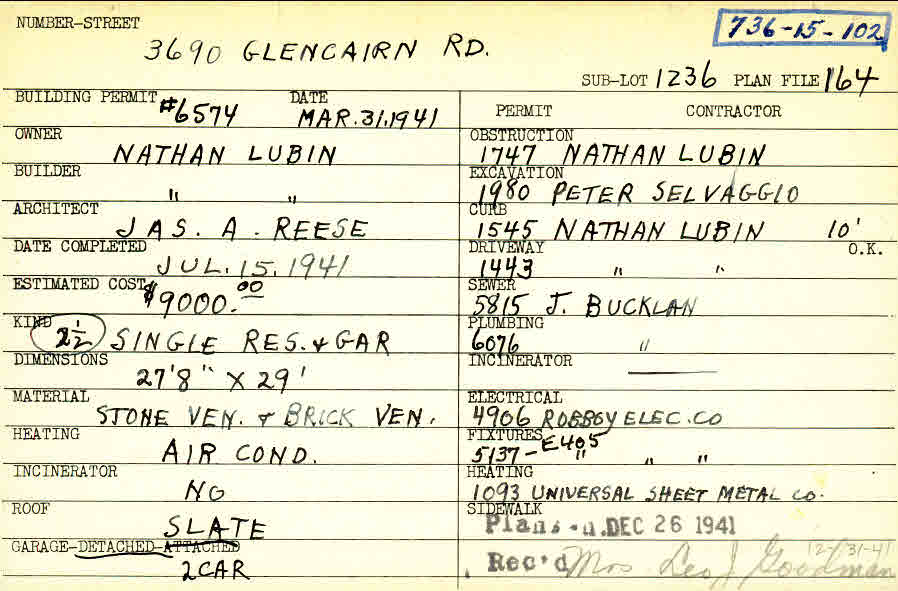 NUMBER-STREET
736-15-102
3690 GLENCAIRN RD.
SUB-LOT 1236 PLAN FILE 164
BUILDING PERMIT #6574 DATE MAR.31.1941
OWNER
NATHAN LUBIN
BUILDER
" "
ARCHITECT
JAS. A. REESE
DATE COMPLETED
JUL. 15. 1941
ESTIMATED COST $9000.00
KIND
2½ SINGLE RES. & GAR
DIMENSIONS
27'8" X 29'
MATERIAL
STONE VEN. & BRICK VEN.
HEATING
AIR COND.
INCINERATOR
NO
ROOF
SLATE
GARAGE-DETACHED-ATTACHED
2 CAR
PERMIT CONTRACTOR
OBSTRUCTION
1747 NATHAN LUBIN
EXCAVATION
1980 PETER SELVAGGIO
CURB
1545 NATHAN LUBIN 10'
DRIVEWAY O.K.
1443 " "
SEWER
5815 J. BUCKLAN
PLUMBING
6076 "
INCINERATOR
ELECTRICAL
4906 ROBBOY ELEC. CO
FIXTURES
5137-E405 " " "
HEATING
1093 UNIVERSAL SHEET METAL CO.
SIDEWALK
Plans DEC 26 1941
12-31-41
Rec'd Mrs Leo J Goodman